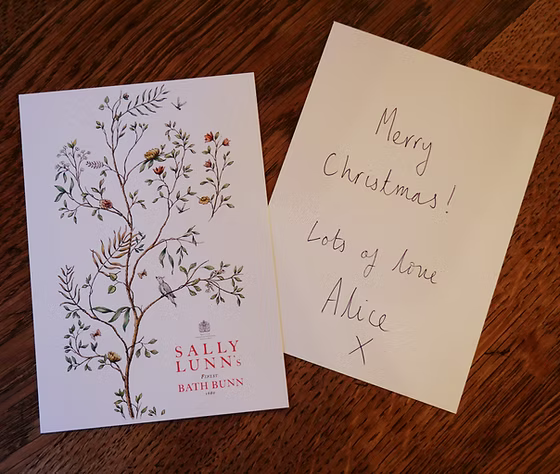 SALLY
LUNN's
Finest
BATH BUNN
1680
Merry
Christmas!
Lots of love
Alice
X